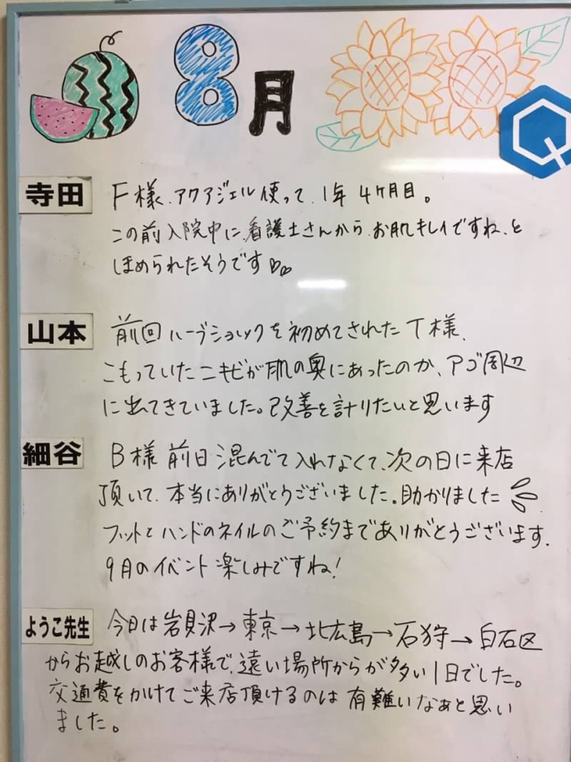 8月
Q
寺田 F様、アクアジェル使って、1年4ヶ月目。
この前入院中に看護士さんから、お肌キレイですね、と
ほめられたそうです
山本 前回ハーブショックを初めてされたT様、
こもっていたニキビが肌の奥にあったのか、アゴ周辺
に出てきていました。改善を計りたいと思います
細谷 B様 前日混んでて入れなくて、次の日に来店
頂いて、本当にありがとうございました。助かりました
フットとハンドのネイルのご予約までありがとうございます.
9月のイベント楽しみですね!
ようこ先生 今日は岩見沢→東京→北広島→石狩→白石区
からお越しのお客様で、遠い場所からが多い1日でした。
交通費をかけてご来店頂けるのは有難いなぁと思い
ました。